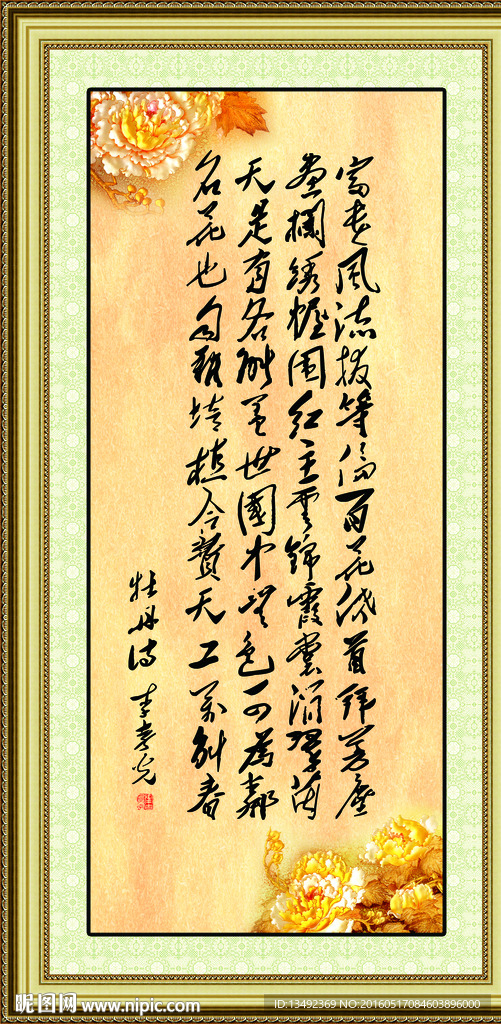 富贵风流拔等伦百花低首拜芳尘
画欄绣幄围红玉云锦霞裳涓翠茵
天是有各能盖世國中无色可为鄰
名花也自难培植合費天工万斛春
牡丹诗 李孝光
昵图网 www.nipic.com
ID:13492369 NO:20160517084603896000